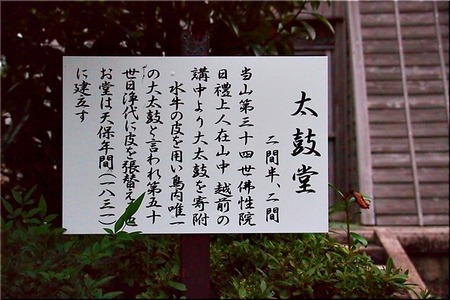 太鼓堂
二間半、二間
当山第三十四世佛性院
日禮上人在山中 越前の
講中より大太鼓を寄附
水牛の皮を用い島内唯一
の大太鼓と言われ第五十
世日浄代に皮を張替え
お堂は天保年間（一八三一）
に建立す